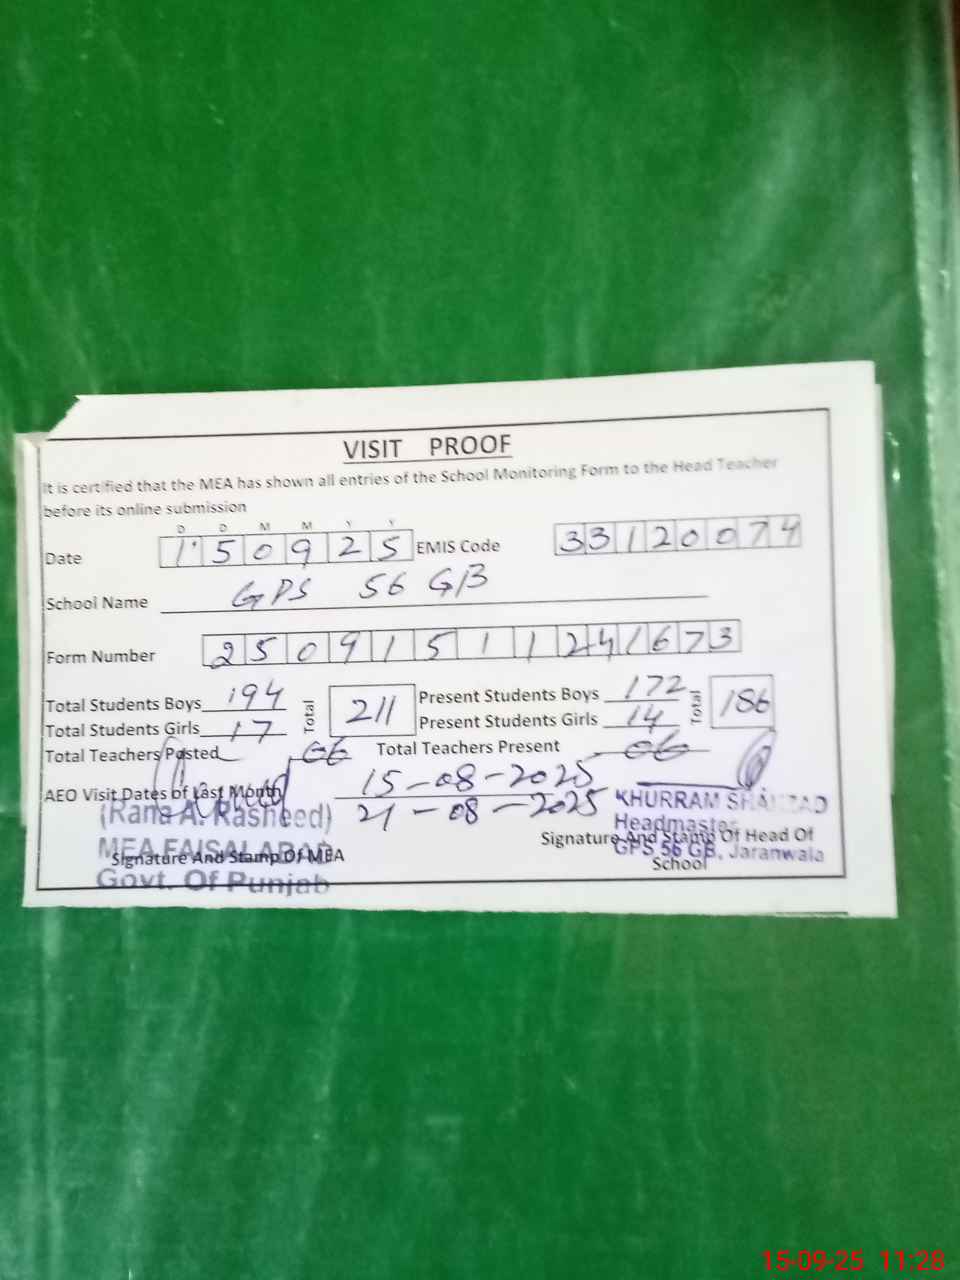 VISIT PROOF
It is certified that the MEA has shown all entries of the School Monitoring Form to the Head Teacher
before its online submission
D D M M Y Y
Date 150925 EMIS Code 33120074
School Name GPS 56 GB
Form Number 25091511241673
Total Students Boys 194 Total 211 Present Students Boys 172 Total 186
Total Students Girls 17 Present Students Girls 14
Total Teachers Posted 06 Total Teachers Present 06
AEO Visit Dates of Last Month 15-08-2025
21-08-2025
(Rana A. Rasheed)
MEA FAISALABAD
Govt. Of Punjab
Signature And Stamp Of MEA
KHURRAM SHAHZAD
Headmaster
GPS 56 GB, Jaranwala
Signature And Stamp Of Head Of
School
15-09-25 11:28